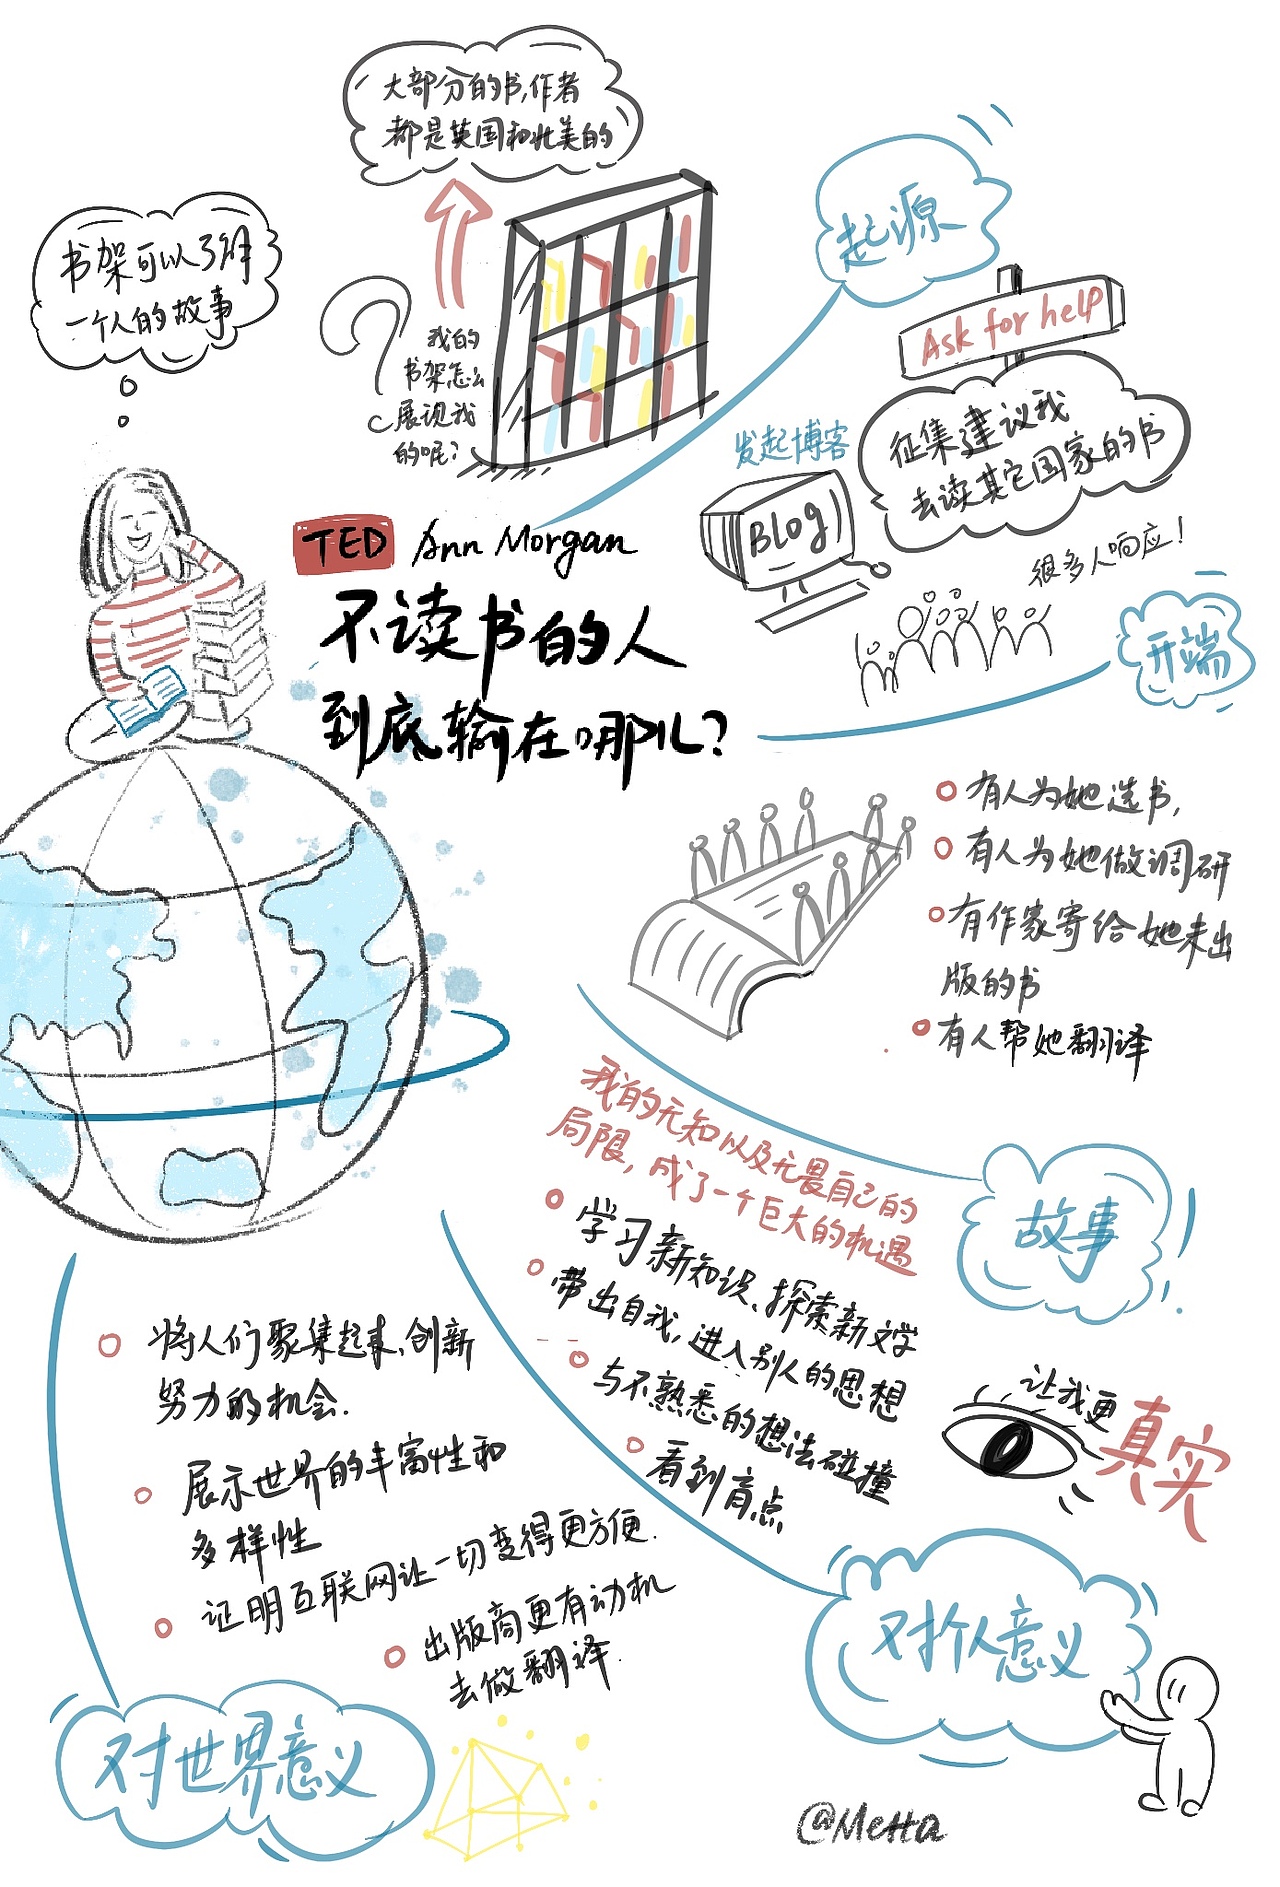 大部分的书,作者
都是英国和北美的
书架可以了解
一个人的故事
我的
书架怎么
展现我
的呢?
起源
Ask for help
发起博客
征集建议我
去读其它国家的书
Blog
很多人响应!
开端
TED Ann Morgan
不读书的人
到底输在哪儿?
有人为她选书,
有人为她做调研
有作家寄给她未出
版的书
有人帮她翻译
我的无知以及无畏自己的
局限,成了一个巨大的机遇
故事
学习新知识、探索新文学
带出自我,进入别人的思想
与不熟悉的想法碰撞
看到盲点
让我更
真实
对个人意义
将人们聚集起来,创新
努力的机会.
展示世界的丰富性和
多样性
证明互联网让一切变得更方便.
出版商更有动机
去做翻译.
对世界意义
@Metta